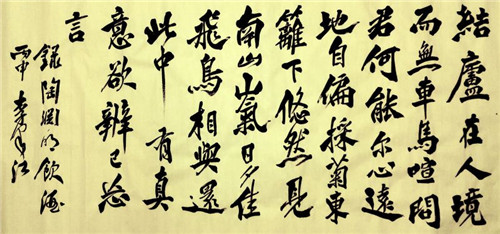 結廬在人境
而無車馬喧問
君何能尔心遠
地自偏採菊東
籬下悠然見
南山山氣日夕佳
飛鳥相與還
此中有真
意欲辨已忘
言
錄陶淵明飲酒
丙申